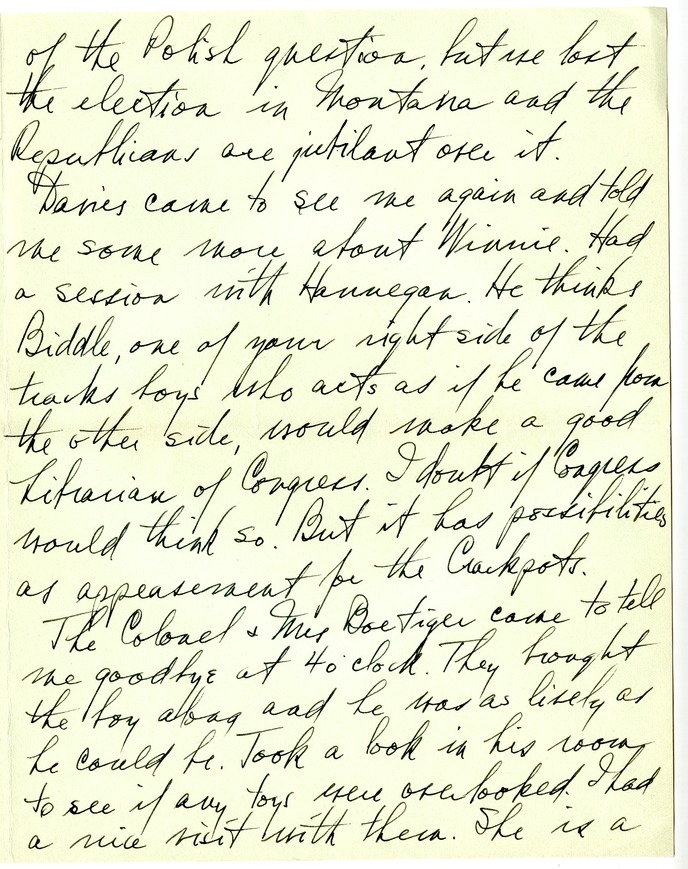 of the Polish question, but we lost
the election in Montana and the
Republicans are jubilant over it.
Davies came to see me again and told
me some more about Winnie. Had
a session with Hannegan. He thinks
Biddle, one of your right side of the
tracks boys who acts as if he came from
the other side, would make a good
Librarian of Congress. I doubt if Congress
would think so. But it has possibilities
as appeasement for the Crackpots.
The Colonel & Mrs Boetiger came to tell
me goodbye at 4 o'clock. They brought
the boy along and he was as lively as
he could be. Took a look in his room
to see if any toys were overlooked. I had
a nice visit with them. She is a